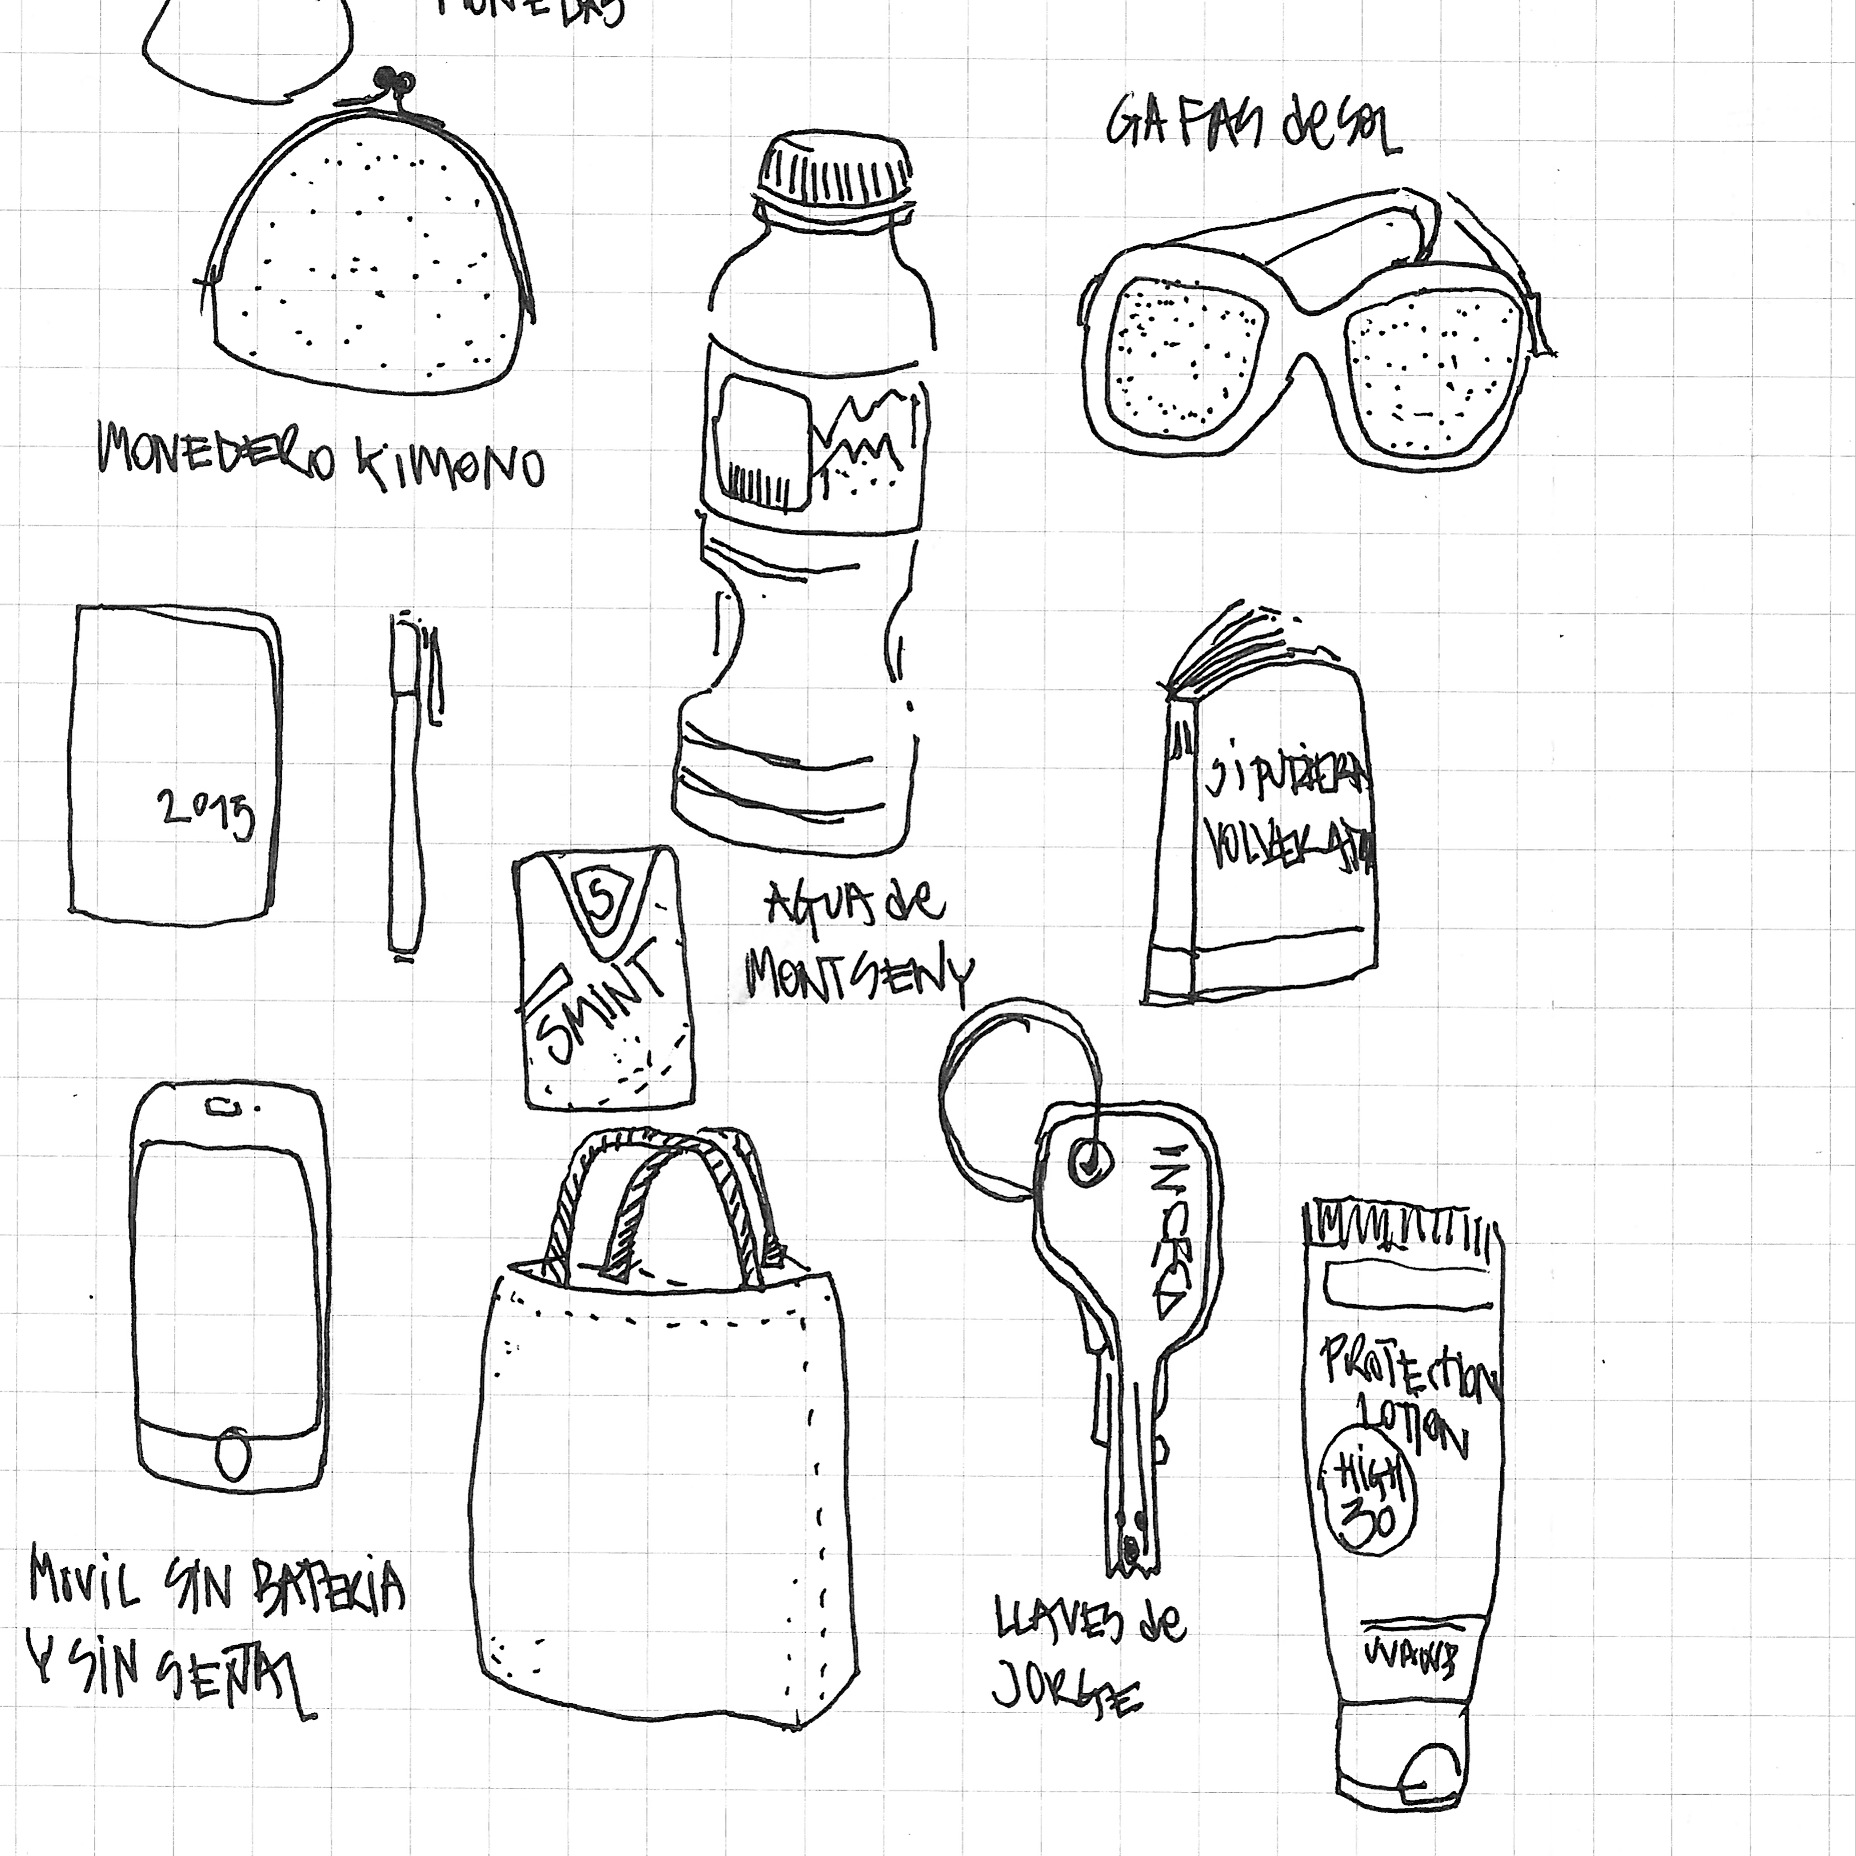 MONEDAS
GAFAS de SOL
MONEDERO KIMONO
2015
SI PUDIERA
VOLVER ATR
S
SMINT
AGUA de
MONTSENY
INCECA
PROTECTION
LOTION
HIGH
30
MOVIL SIN BATERIA
Y SIN SEÑAL
LLAVES de
JORGE